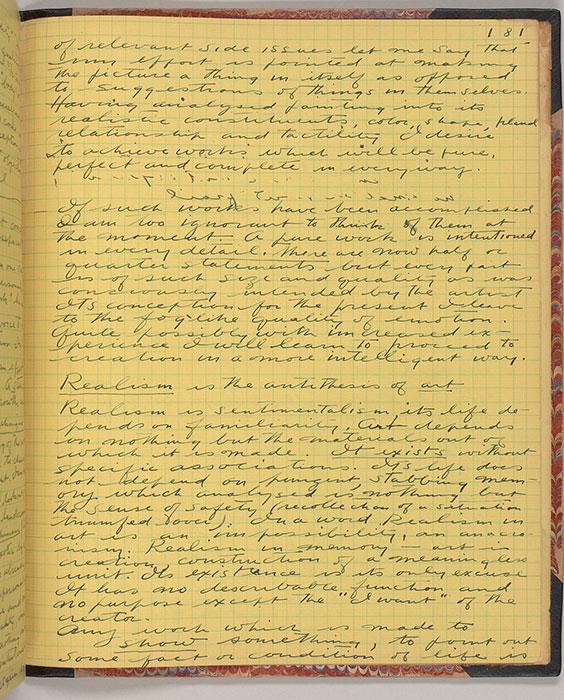 181
of relevant side issues let me say that
my effort is pointed at making
the picture a thing in itself as opposed
to suggestions of things in themselves.
Having analysed painting into its
realistic constituents, color, shape,
relationship and tactility I desire
to achieve works which will be pure,
perfect and complete in every way.
If such works have been accomplished
I am too ignorant to think of them at
the moment. A pure work is intentioned
in every detail. There are now half or
quarter statements but every part
is of such size and quality as was
conciously intended by the artist
Its conception for the present I leave
to the fog-like quality of emotion.
Quite possibly with increased ex-
perience I will learn to proceed to
creation in a more intelligent way.
Realism is the antithesis of art
Realism is sentimentalism, its life de-
pends on familiarity. Art depends
on nothing but the materials out of
which it is made. It exists without
specific associations. Its life does
not depend on pungent, stabbing mem-
ory which analysed is nothing but
the sense of safety (recollection of a situation
triumfed over). In a word, Realism in
art is an impossibility, an anacro-
nism. Realism is memory - art is
creation, construction of a meaningless
unit. Its existance is its only excuse
It has no describable function and
no purpose except the "I want" of the
creator.
Any work which is made to
show something, to point out
some fact or condition of life is